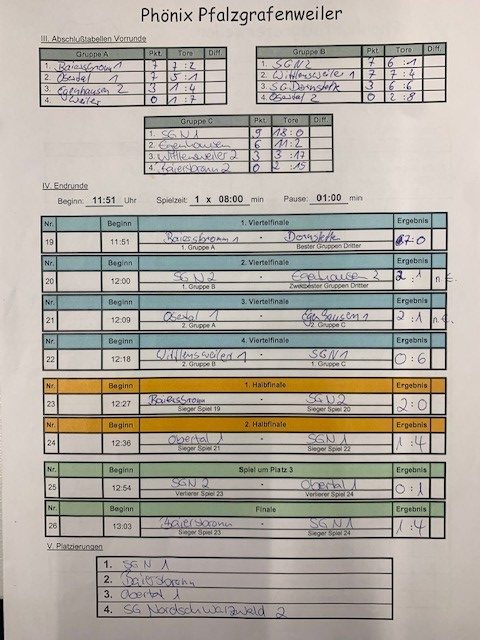 Phönix Pfalzgrafenweiler
III. Abschlußtabellen Vorrunde
Gruppe A Pkt. Tore Diff.
1. Baiersbronn 1 7 7 : 2
2. Obertal 1 7 5 : 1
3. Egenhausen 2 3 1 : 4
4. Weiler 0 1 : 7
Gruppe B Pkt. Tore Diff.
1. SGN 2 7 6 : 1
2. Wittlensweiler 1 7 7 : 4
3. SG Dornstetten 3 6 : 6
4. Obertal 2 0 2 : 8
Gruppe C Pkt. Tore Diff.
1. SGN 1 9 18 : 0
2. Egenhausen 6 11 : 2
3. Wittlensweiler 2 3 3 : 17
4. Baiersbronn 2 0 2 : 15
IV. Endrunde
Beginn: 11:51 Uhr Spielzeit: 1 x 08:00 min Pause: 01:00 min
Nr. Beginn 1. Viertelfinale Ergebnis
19 11:51 Baiersbronn 1 - Dornstetten 7:0
1. Gruppe A Bester Gruppen Dritter
Nr. Beginn 2. Viertelfinale Ergebnis
20 12:00 SG N 2 - Egenhausen 2 2 : 1 n.E.
1. Gruppe B Zweitbester Gruppen Dritter
Nr. Beginn 3. Viertelfinale Ergebnis
21 12:09 Obertal 1 - Egenhausen 1 2 : 1 n.E.
2. Gruppe A 2. Gruppe C
Nr. Beginn 4. Viertelfinale Ergebnis
22 12:18 Wittlensweiler 1 - SGN 1 0 : 6
2. Gruppe B 1. Gruppe C
Nr. Beginn 1. Halbfinale Ergebnis
23 12:27 Baiersbronn - SGN 2 2 : 0
Sieger Spiel 19 Sieger Spiel 20
Nr. Beginn 2. Halbfinale Ergebnis
24 12:36 Obertal 1 - SGN 1 1 : 4
Sieger Spiel 21 Sieger Spiel 22
Nr. Beginn Spiel um Platz 3 Ergebnis
25 12:54 SGN 2 - Obertal 1 0 : 1
Verlierer Spiel 23 Verlierer Spiel 24
Nr. Beginn Finale Ergebnis
26 13:03 Baiersbronn - SGN 1 1 : 4
Sieger Spiel 23 Sieger Spiel 24
V. Platzierungen
1. SG N 1
2. Baiersbronn
3. Obertal 1
4. SG Nordschwarzwald 2